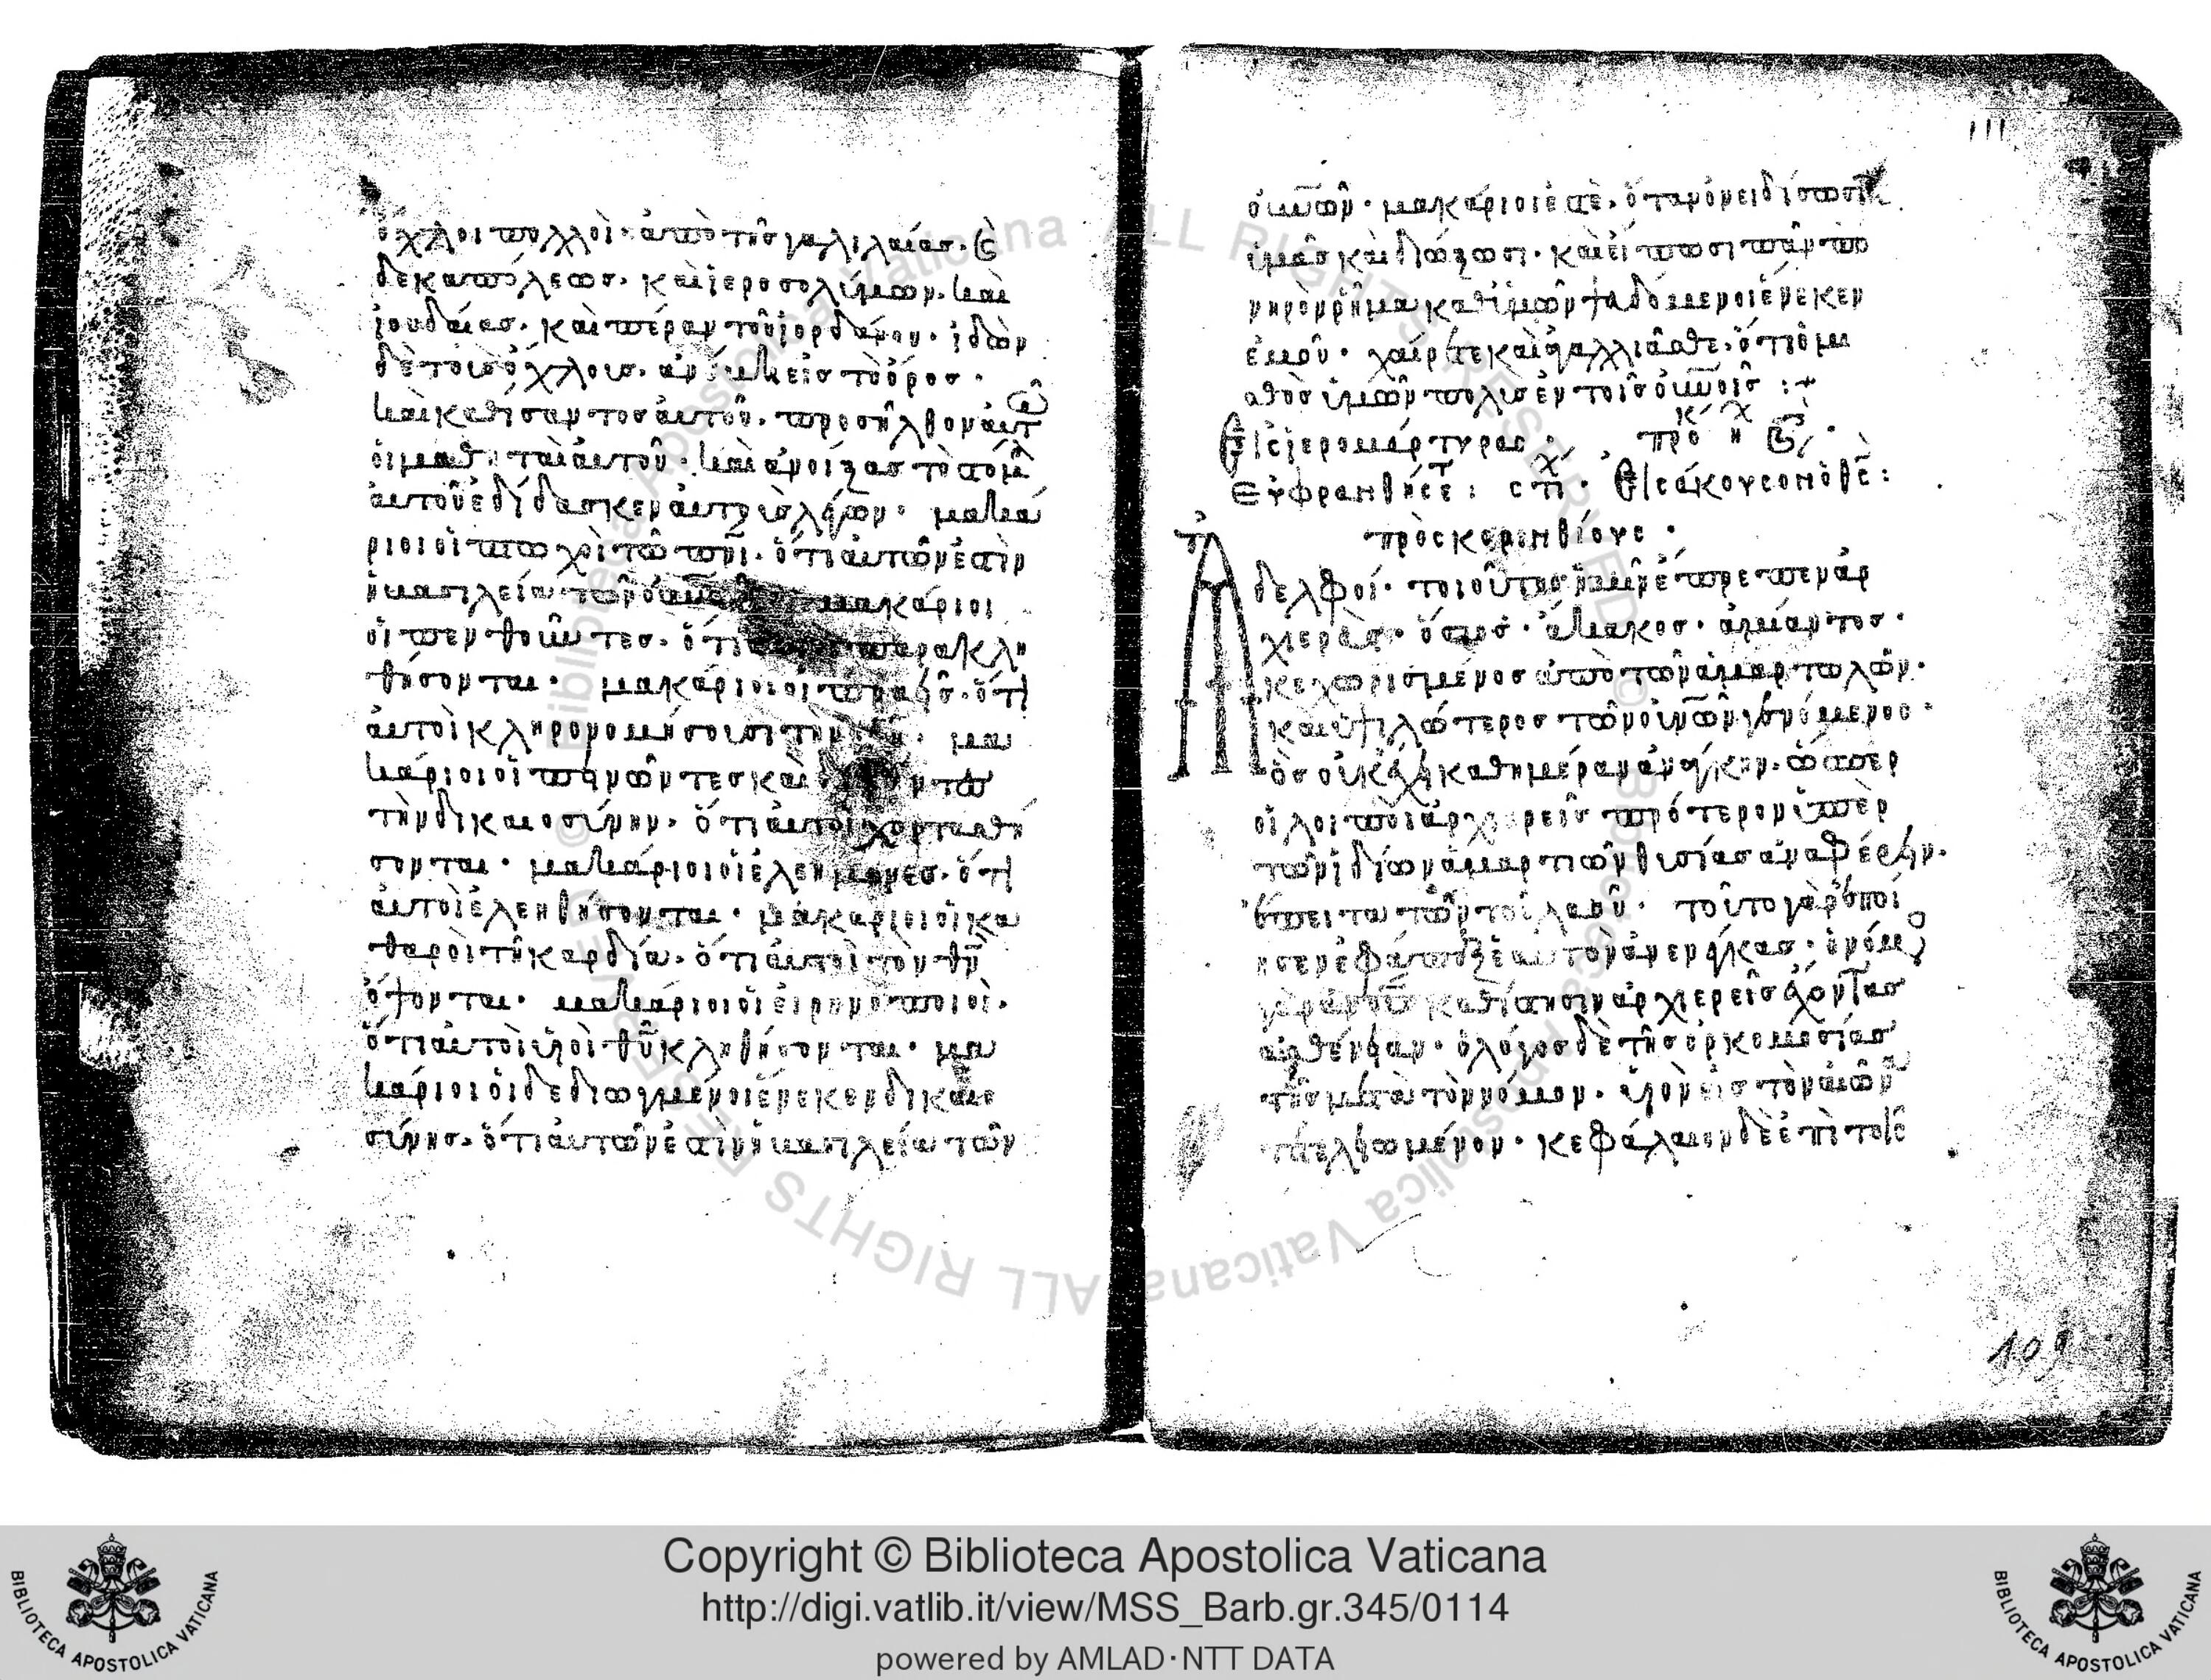 ὄχλοι πολλοὶ· ἀπὸ τῆσ γαλιλαίασ· κ
δεκαπόλεωσ· καὶ ἱεροσολύμων· καὶ
ἰουδαίασ· καὶ πέραν τοῦ ἰορδάνου· ἰδὼν
δὲ τοὺσ ὄχλουσ· ἀνέβη εἰσ τὸ ὄροσ·
καὶ καθίσαντοσ ἀυτοῦ· προσῆλθον ἀυτῶ
ὁι μαθηταὶ ἀυτοῦ· καὶ ἀνοίξασ τὸ στόμα
ἀυτοῦ ἐδίδασκεν ἀυτοὺσ λέγων· μακά
ριοι οἱ πτωχοὶ τῶ πνι· ὅτι ἀυτῶν ἐστὶν
ἡ βασιλεία τῶν μακάριοι
οἱ πενθοῦντεσ· ὅτι παρακλη
θήσονται· μακάριοι οἱ πραεῖσ· ὅτι
ἀυτοὶ κληρονομήσουσι τὴν γῆν· μα
κάριοι οἱ πεινῶντεσ καὶ
τὴν δικαιοσύνην· ὅτι ἀυτοὶ χορτασθή
σονται· μακάριοι οἱ ἐλεήμονεσ· ὅτι
ἀυτοὶ ἐλεηθήσονται· μακάριοι οἱ κα
θαροὶ τῆ καρδία· ὅτι ἀυτοὶ τὸν θν
ὄψονται· μακάριοι οἱ εἰρηνοποιοὶ·
ὅτι ἀυτοὶ ὑιοὶ θυ κληθήσονται· μα
κάριοι ὁι δεδιωγμένοι ἕνεκεν δικαιο
σύνησ· ὅτι ἀυτῶν ἐστὶν ἡ βασιλεία τῶν
111
ὀυνων· μακάριοι ἐστὲ· ὅταν ὀνειδίσωσιν
ὑμᾶσ καὶ διώξωσι· καὶ εἴπωσι πᾶν πο
νηρὸν ῥῆμα καθ ὑμῶν ψαδόμενοι ἕνεκεν
ἐμοῦ· χαίρετε καὶ ἀγαλλιᾶσθε· ὅτι ὁ μι
σθὸσ ὑμῶν πολὺσ ἐν τοῖσ ὀυνοισ :+
Εἰς ἱερομάρτυρας· προκ
Εὐφρανθήσετ: στιχ· Εἰσάκουσον ὁ θς:
πρὸς κορινθίους·
Ἀδελφοί· τοιοῦτος ἡμῖν ἔπρεπεν ἀρ
χιερεὺσ· ὅσιοσ· ἄκακοσ· ἀμίαντοσ·
κεχωρισμένοσ ἀπὸ τῶν ἁμαρτωλῶν·
καὶ ὑψιλώτεροσ τῶν ὀυνων γενόμενοσ·
ὃσ οὐκ ἔχη καθημέραν ἀνάγκην· ὥσπερ
οἱ λοιποὶ ἀρχιερεῖσ πρότερον ὑπὲρ
τῶν ἰδίων ἁμαρτιῶν θυσίασ ἀναφέρειν·
ἔπειτα τῶν τοῦ λαοῦ· τοῦτο γὰρ ἐποί
ησεν ἐφάπαξ ἑαυτὸν ἀνενέγκασ· ὁ νόμοσ
γὰρ ἀνουσ καθίστησιν ἀρχιερεῖσ ἔχοντασ
ἀσθένειαν· ὁ λόγοσ δὲ τῆσ ὁρκομοσίασ
τῆσ μετὰ τὸν νόμον· ὑιὸν εἰσ τὸν ἀιῶνα
τετελειωμένον· κεφάλαιον δὲ ἐπὶ τοῖσ
109
Copyright © Biblioteca Apostolica Vaticana
http://digi.vatlib.it/view/MSS_Barb.gr.345/0114
powered by AMLAD·NTT DATA
BIBLIOTECA APOSTOLICA VATICANA
BIBLIOTECA APOSTOLICA VATICANA